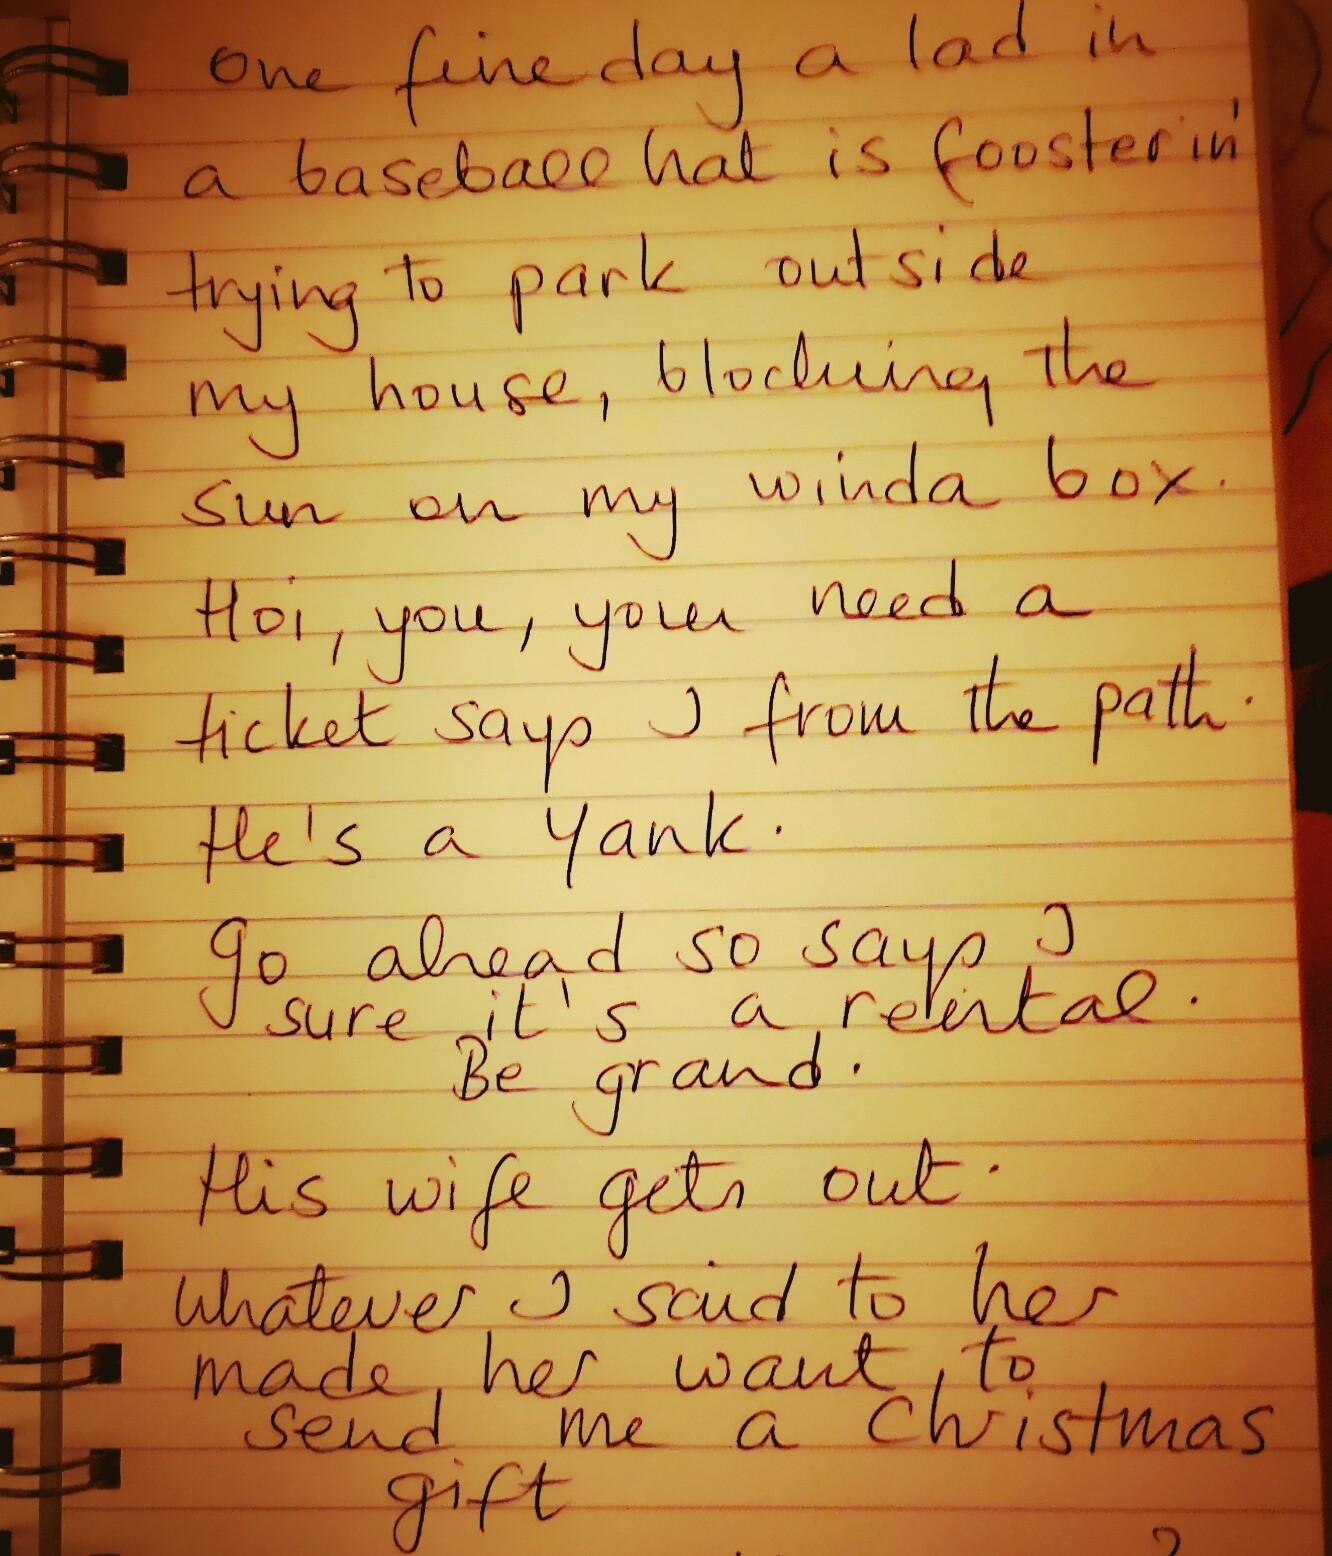 One fine day a lad in
a baseball hat is fooster in'
trying to park outside
my house, blocking the
sun on my winda box.
Hoi, you, you need a
ticket says I from the path.
He's a Yank.
Go ahead so says I
sure it's a rental.
Be grand.
His wife gets out.
Whatever I said to her
made her want to
send me a Christmas
gift